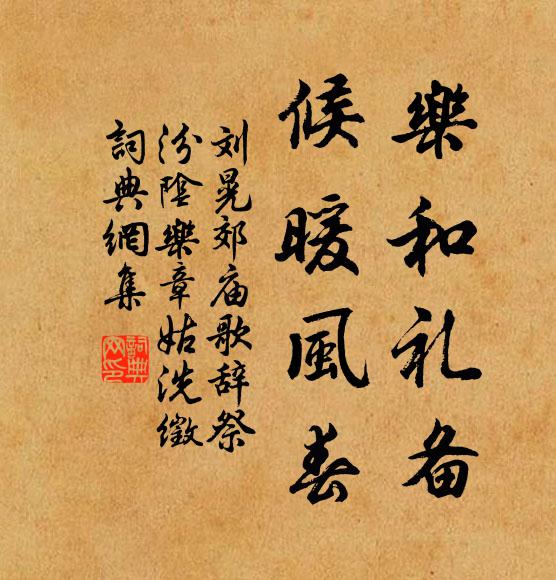 樂和礼备
候暖風春
刘晃郊庙歌辞祭
汾陰樂章姑洗徵
詞典網集
詞典网印